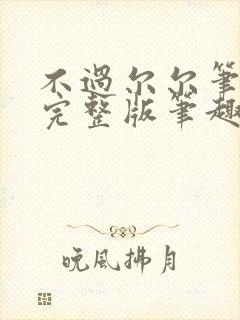 不過尔尔筆
完整版筆趣
晚風拂月